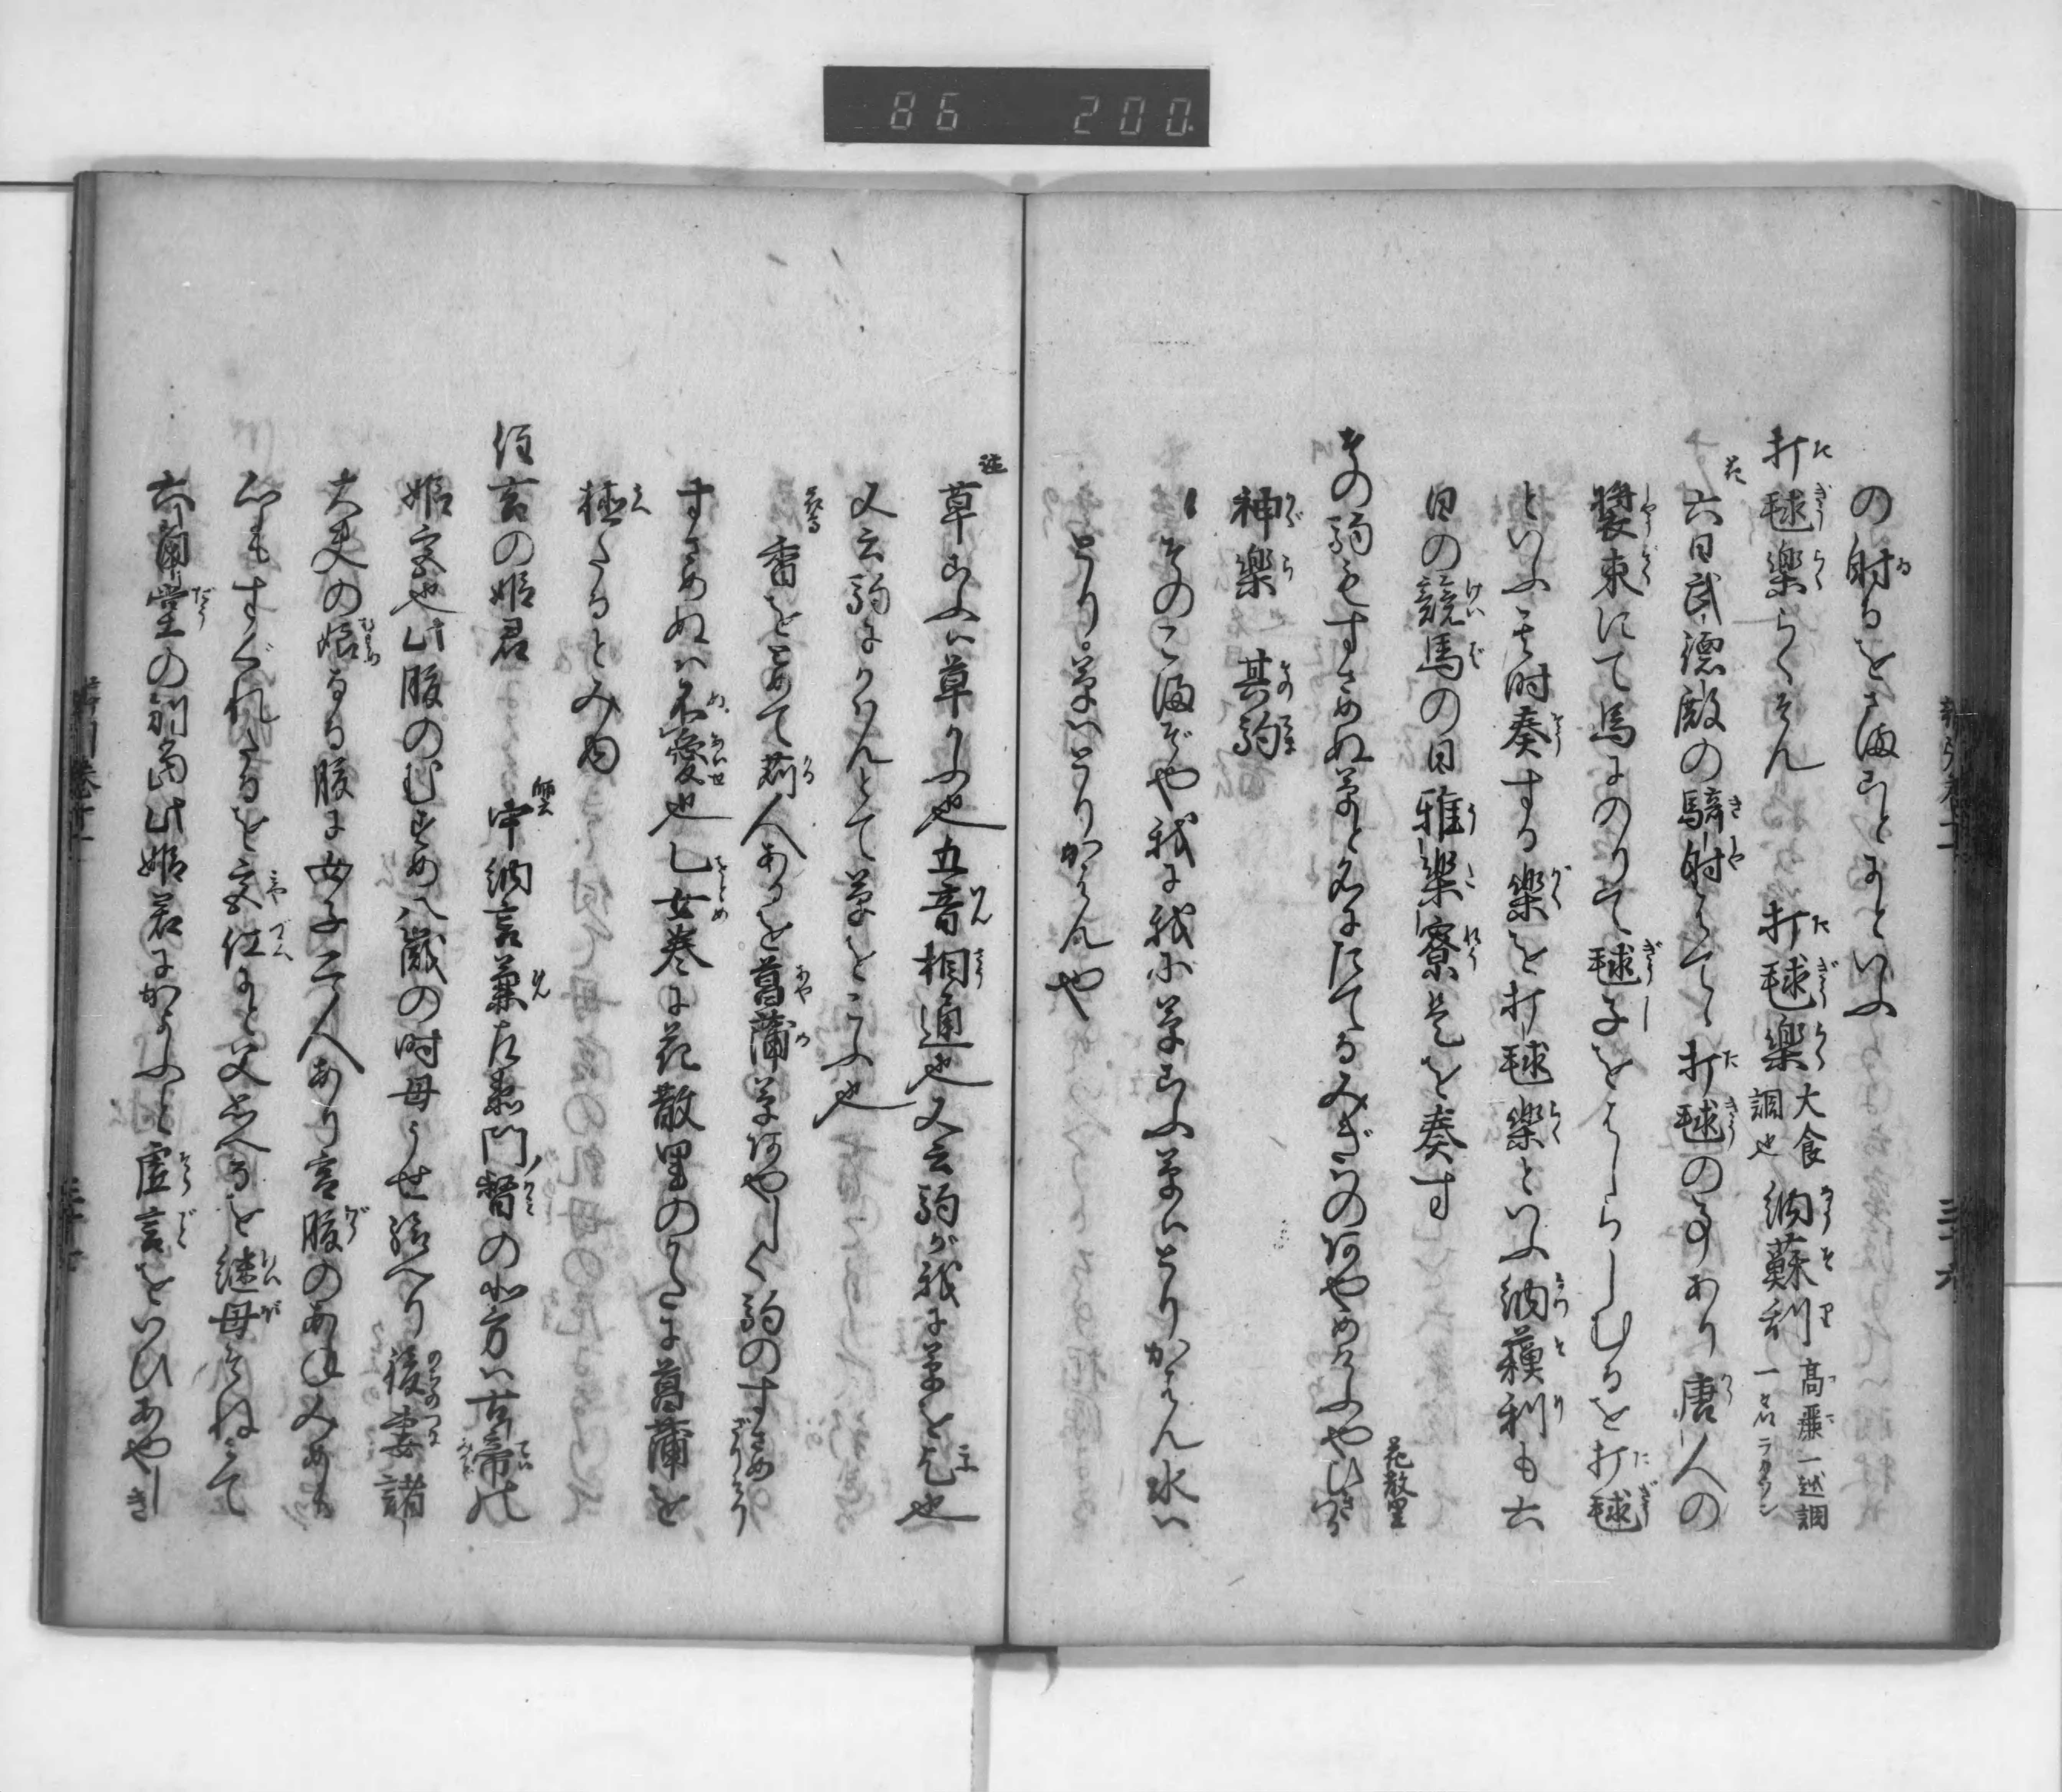 86 200
の射るをさまことにといふ
打毬楽らくそん 打毬楽 大食調也 納蘇利 高麗一越調 一名ラクソン
六日武徳殿の騎射はてゝ打毬の事あり唐人の
装束にて馬にのりて毬子をはしらしむるを打毬
といふ其時奏する楽を打毬楽といふ納蘓利も六
日の競馬の日雅楽寮是を奏す
その駒もすさめぬ草と名にたてるみぎはのあやめけふやひきつる 花散里
神楽 其駒
そのこまぞや我に我に草こふ草はとりかはん水は
とり草はとりかはんや
草こふは草かふ也五音相通也又云駒が我に草を乞也
又云駒にかはんとて草をこふ也
香をとめて苅人あるを菖蒲草あやしく駒のすさめざりける
すさめぬは不愛也乙女巻に花散里のかたに菖蒲を
植たるとみゆ
住吉の姫君 中納言兼左衛門督の北方は古帝の
姫宮也此腹のむすめ八歳の時母うせ給へり後妻諸
大夫の娘なる腹に女子二人あり宮腹のあねみめも
心もすぐれたるを宮仕にと父思へるを継母そねみて
六角堂の別当此姫君にかよふと虚言をいひあやしき